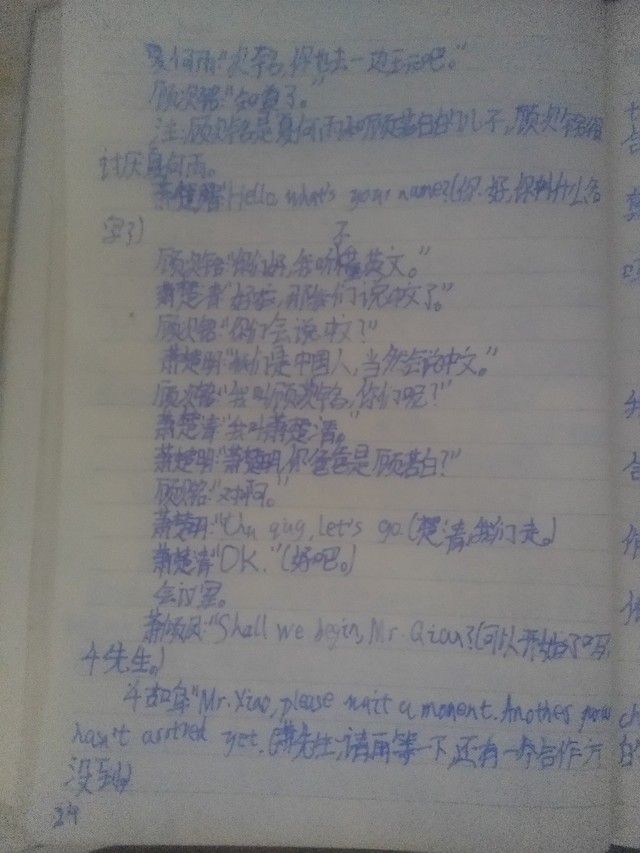 夏何雨:"次铭,你也去一边玩吧。"
顾次铭:"知道了。"
注:顾次铭是夏何雨和顾若白的儿子,顾次铭很
讨厌夏何雨。
萧楚明:"Hello, what's your name?(你好,你叫什么名
字?)
顾次铭:"你们好,我听不懂英文。"
萧楚清:"好吧,那我们说中文了。"
顾次铭:"你们会说中文?"
萧楚明:"我们是中国人,当然会说中文。"
顾次铭:"我叫顾次铭,你们呢?"
萧楚清:"我叫萧楚清。"
萧楚明:"萧楚明,你爸爸是顾若白?"
顾次铭:"对啊。"
萧楚明:"Chu qing, let's go.(楚清,我们走。)
萧楚清:"OK."(好吧。)
会议室。
萧倾风:"Shall we begin, Mr. Qian?(可以开始了吗,
先生。)
"Mr. Xiao, please wait a moment. Another
hasn't arrived yet.(萧先生,请再等一下,还有一个合作方
没到。)
24